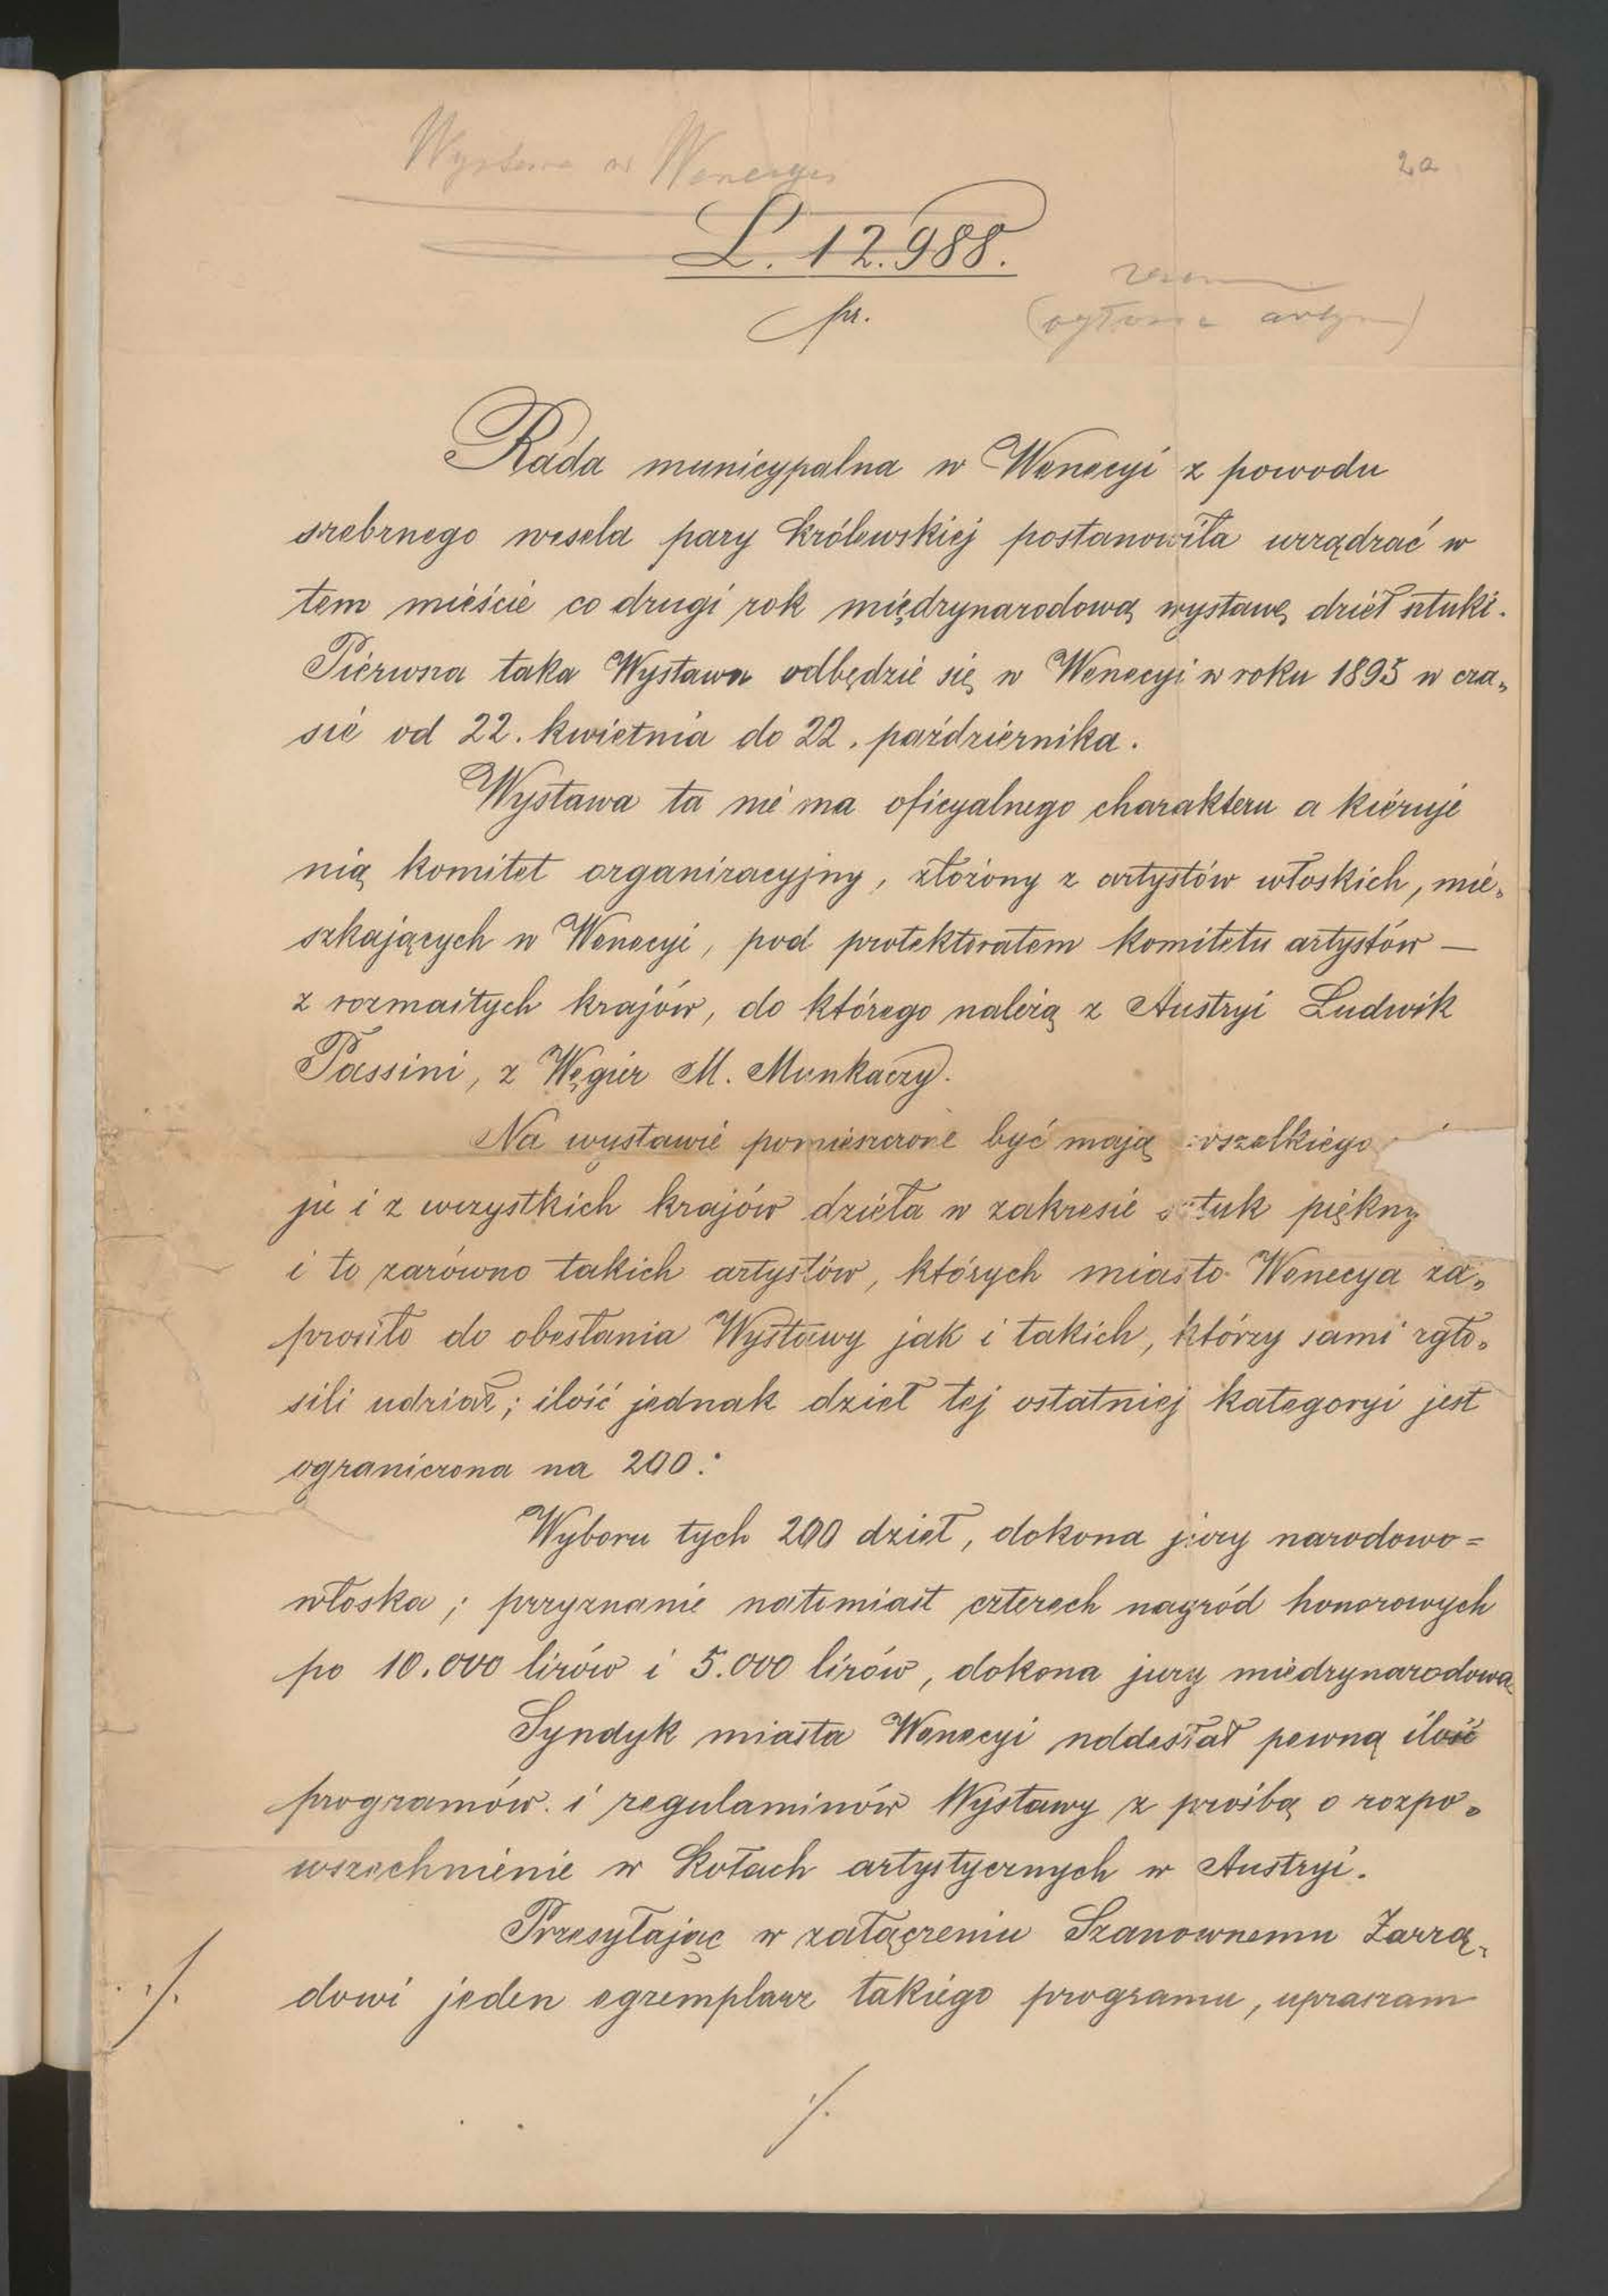 Wystawa w Wenecyi
2a
L. 12.988.
pr.
Rada municypalna w Wenecyi z powodu
srebrnego wesela pary królewskiej postanowiła urządzać w
tem mieście co drugi rok międzynarodową wystawę dzieł sztuki.
Pierwsza taka Wystawa odbędzie się w Wenecyi w roku 1895 w cza„
sie od 22. kwietnia do 22. października.
Wystawa ta nie ma oficyalnego charakteru a kieruje
nią komitet organizacyjny, złożony z artystów włoskich, mie„
szkających w Wenecyi, pod protektoratem komitetu artystów —
z rozmaitych krajów, do którego należą z Austryi Ludwik
Passini, z Węgier M. Munkaczy.
Na wystawie pomieszczone być mają wszelkiego
ju i z wszystkich krajów dzieła w zakresie sztuk piękny
i to zarówno takich artystów, których miasto Wenecya za„
prosiło do obesłania Wystawy jak i takich, którzy sami zgło„
sili udział; ilość jednak dzieł tej ostatniej kategoryi jest
ograniczona na 200.
Wyboru tych 200 dzieł, dokona jury narodowo=
włoska; przyznanie natomiast czterech nagród honorowych
po 10.000 lirów i 5.000 lirów, dokona jury miedzynarodowa
Syndyk miasta Wenecyi nddesłał pewną ilość
programów i regulaminów Wystawy z prośbą o rozpo„
wszechnienie w kołach artystycznych w Austryi.
Przesyłając w załączeniu Szanownemu Zarzą„
./. dowi jeden egzemplarz takiego programu, upraszam
./.